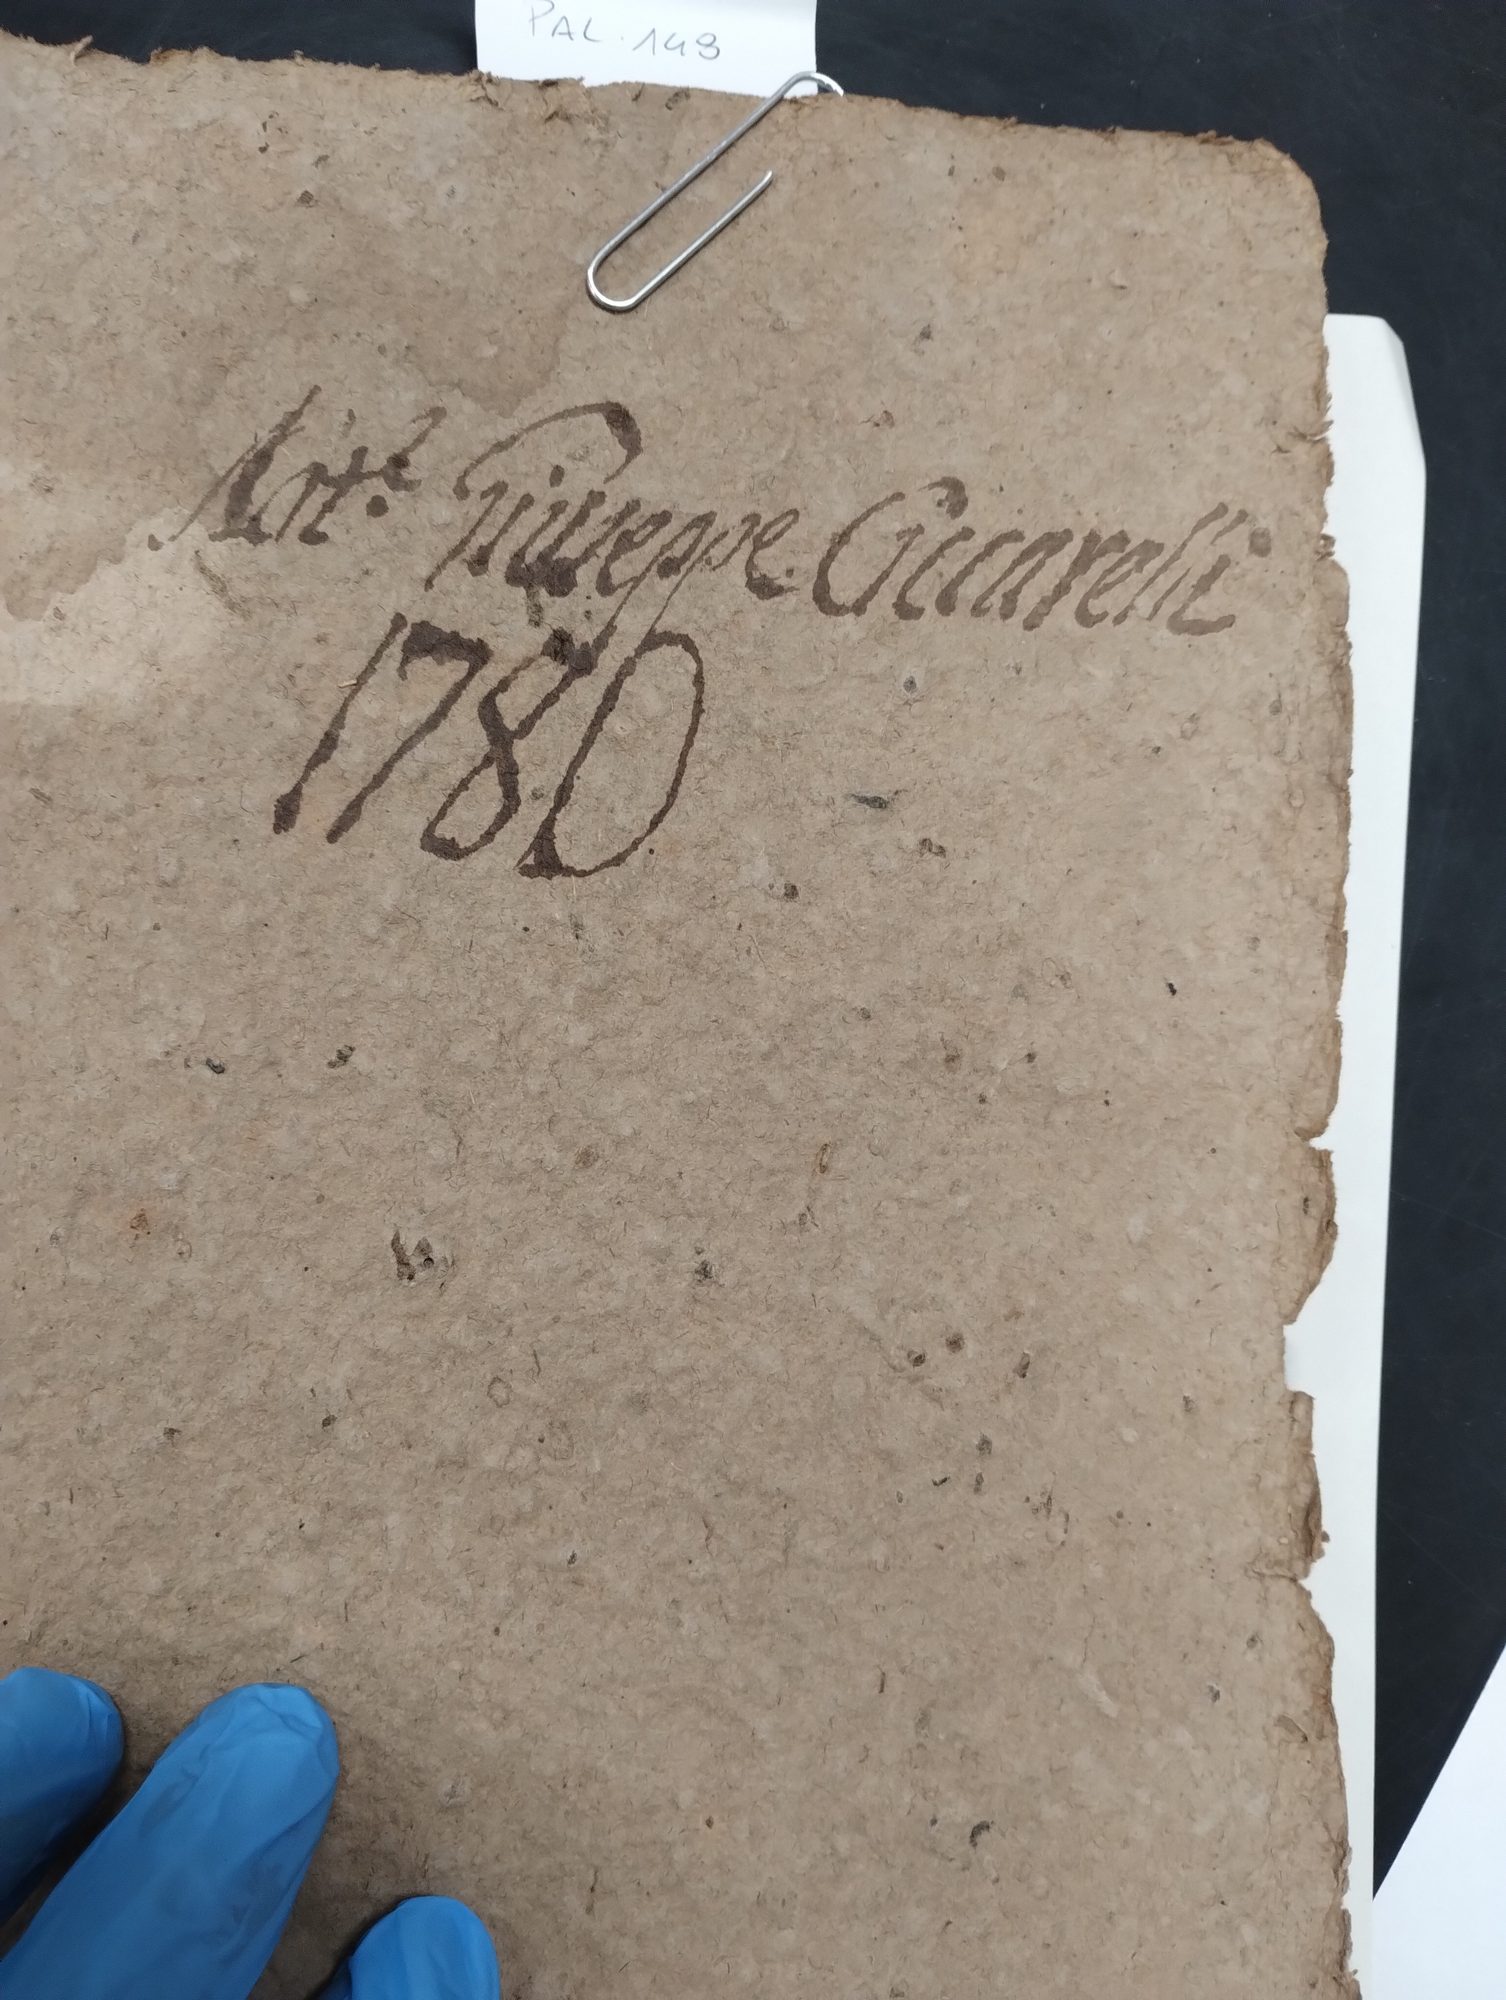 PAL. 149
Art.e Giuseppe Ciccarelli
1780